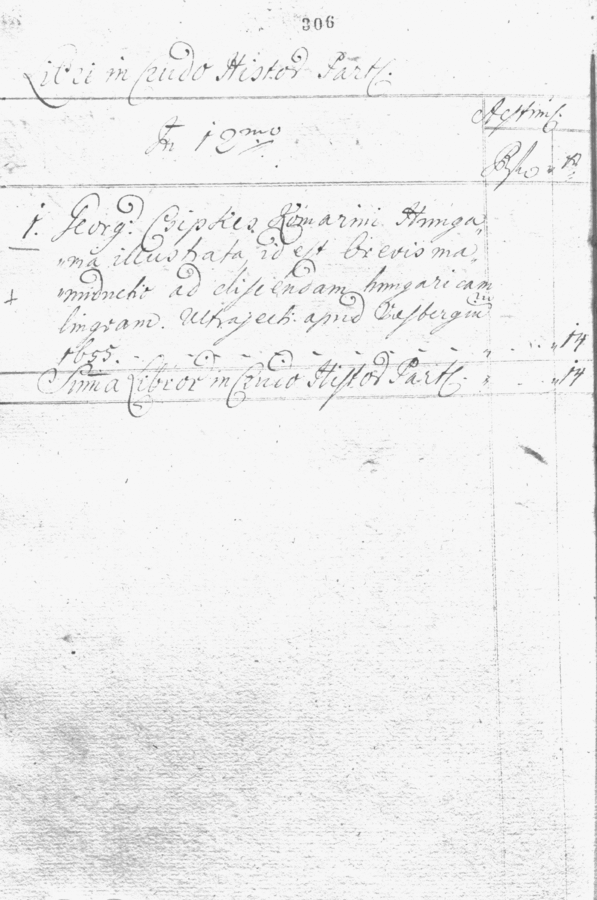 306
Libri in Crudo Histor Part.
Aestim.
In 12mo
1. Georg. Csipkes Komarini Hunga„
„ria illustrata id est brevis ma„
„nuductio ad discendam hungaricam
lingvam. Ultrajecti apud Wesbergiu
1655. „ „ 14
Suma Libror in Crudo Histor Part. „ „ 14